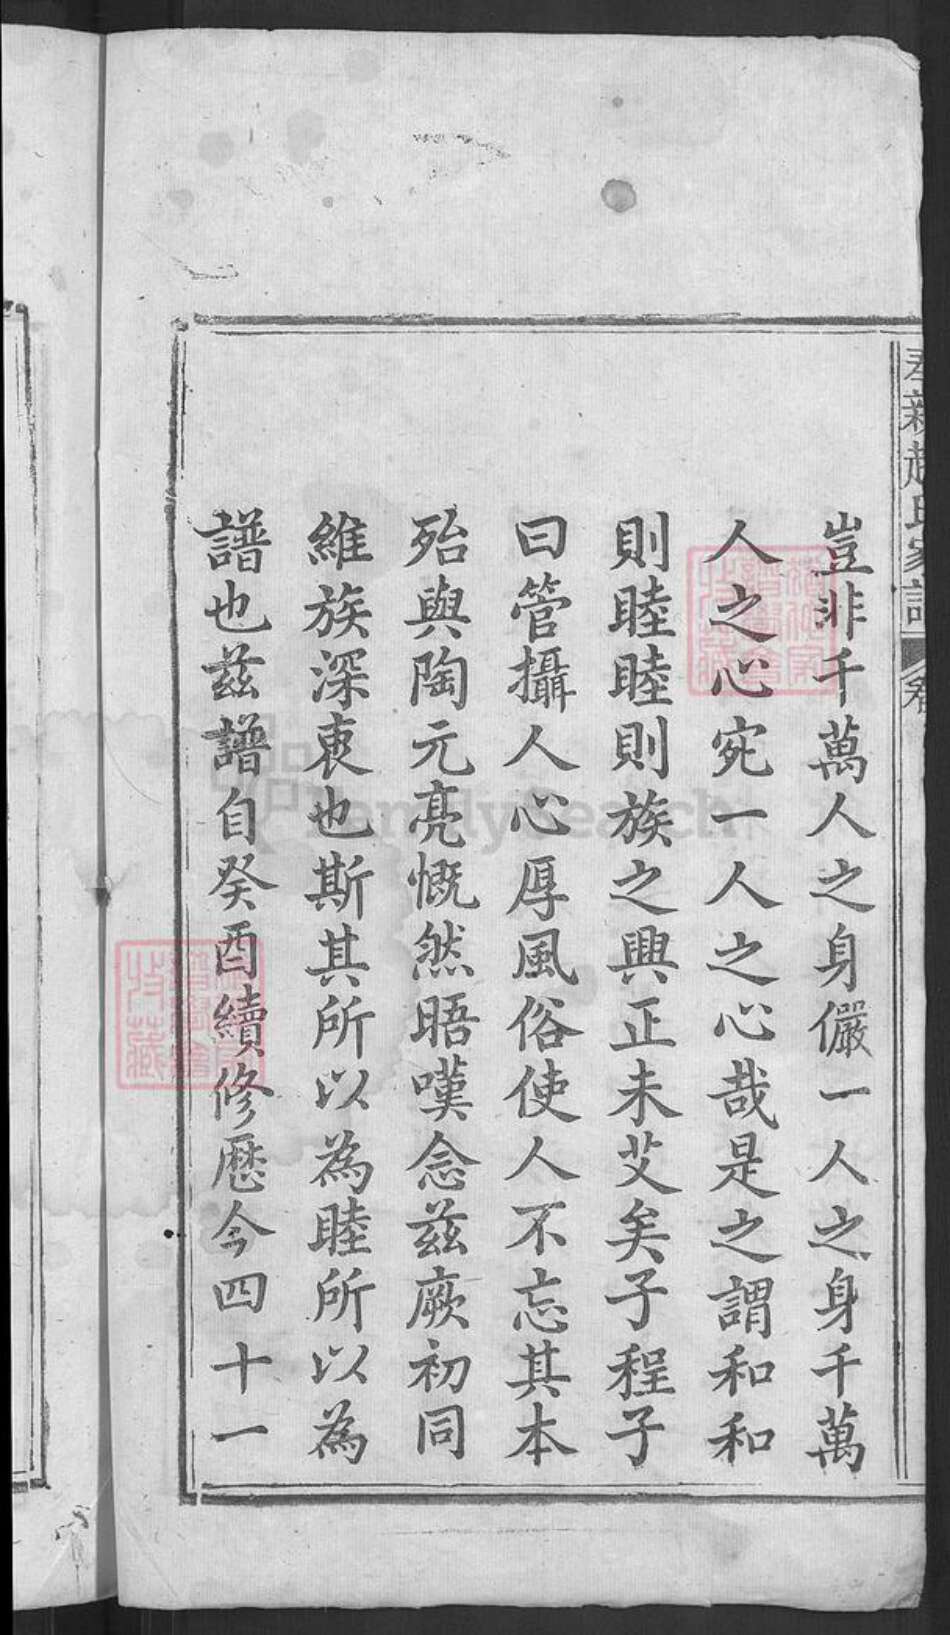 新趙氏家譜
豈非千萬人之身儼一人之身千萬
人之心宛一人之心哉是之謂和和
則睦睦則族之興正未艾矣子程子
曰管攝人心厚風俗使人不忘其本
殆與陶元亮慨然晤嘆念茲厥初同
維族深衷也斯其所以為睦所以為
譜也茲譜自癸酉續修歷今四十一
FamilySearch